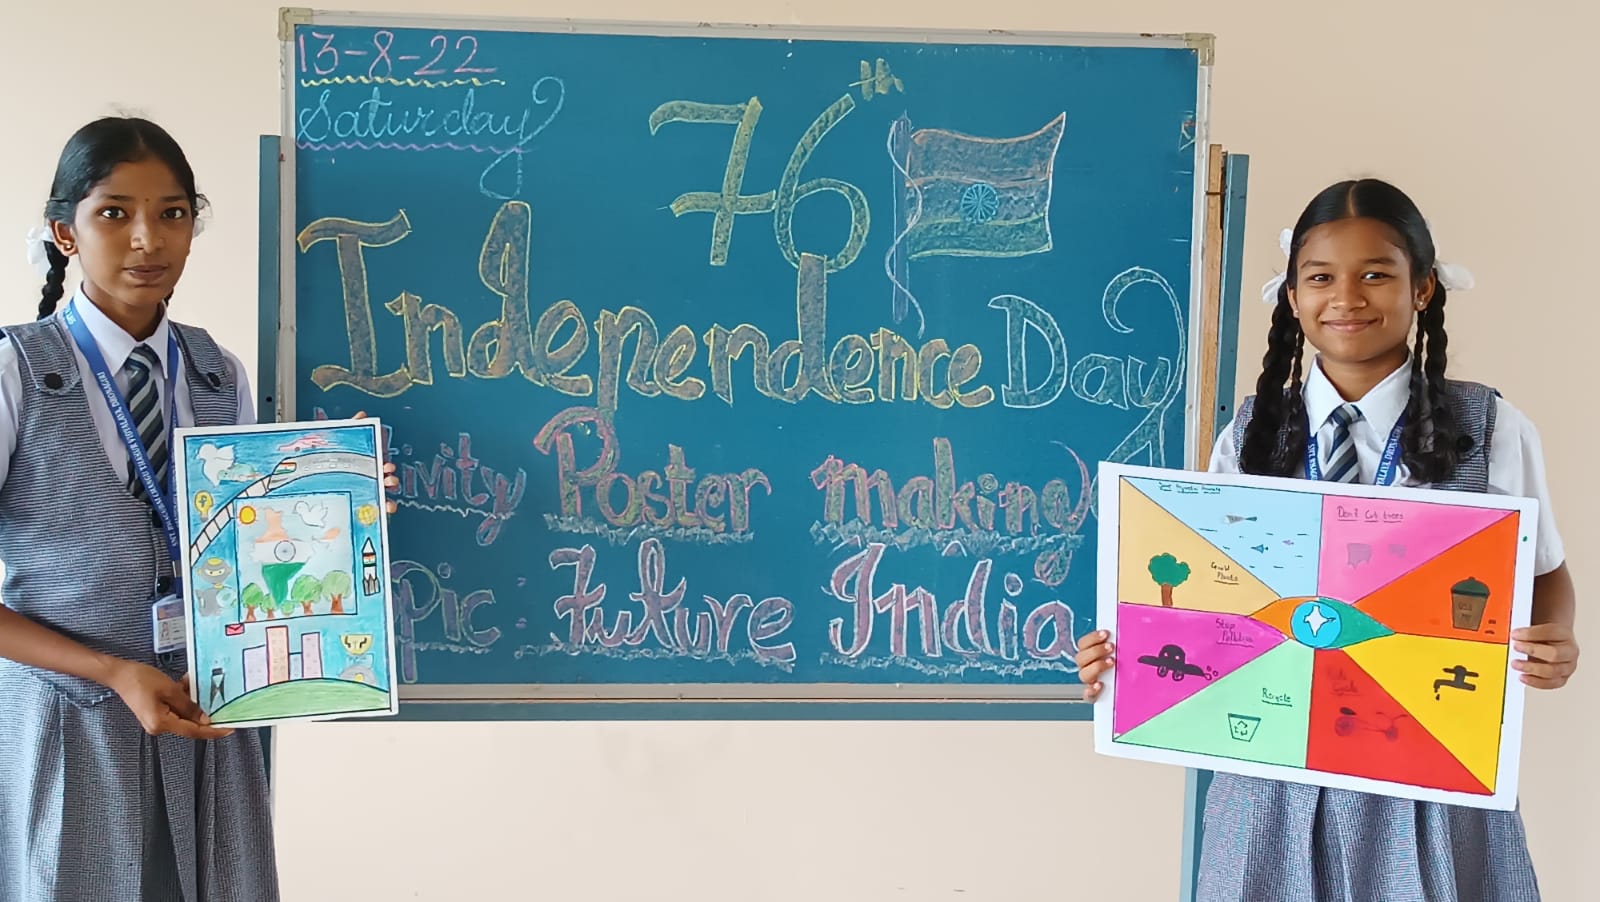 13-8-22
Saturday
76th
Independence Day
tivity Poster making
pic : Future India
Don't Cut trees
Grow
Plants
Stop
Pollution
Recycle
USE